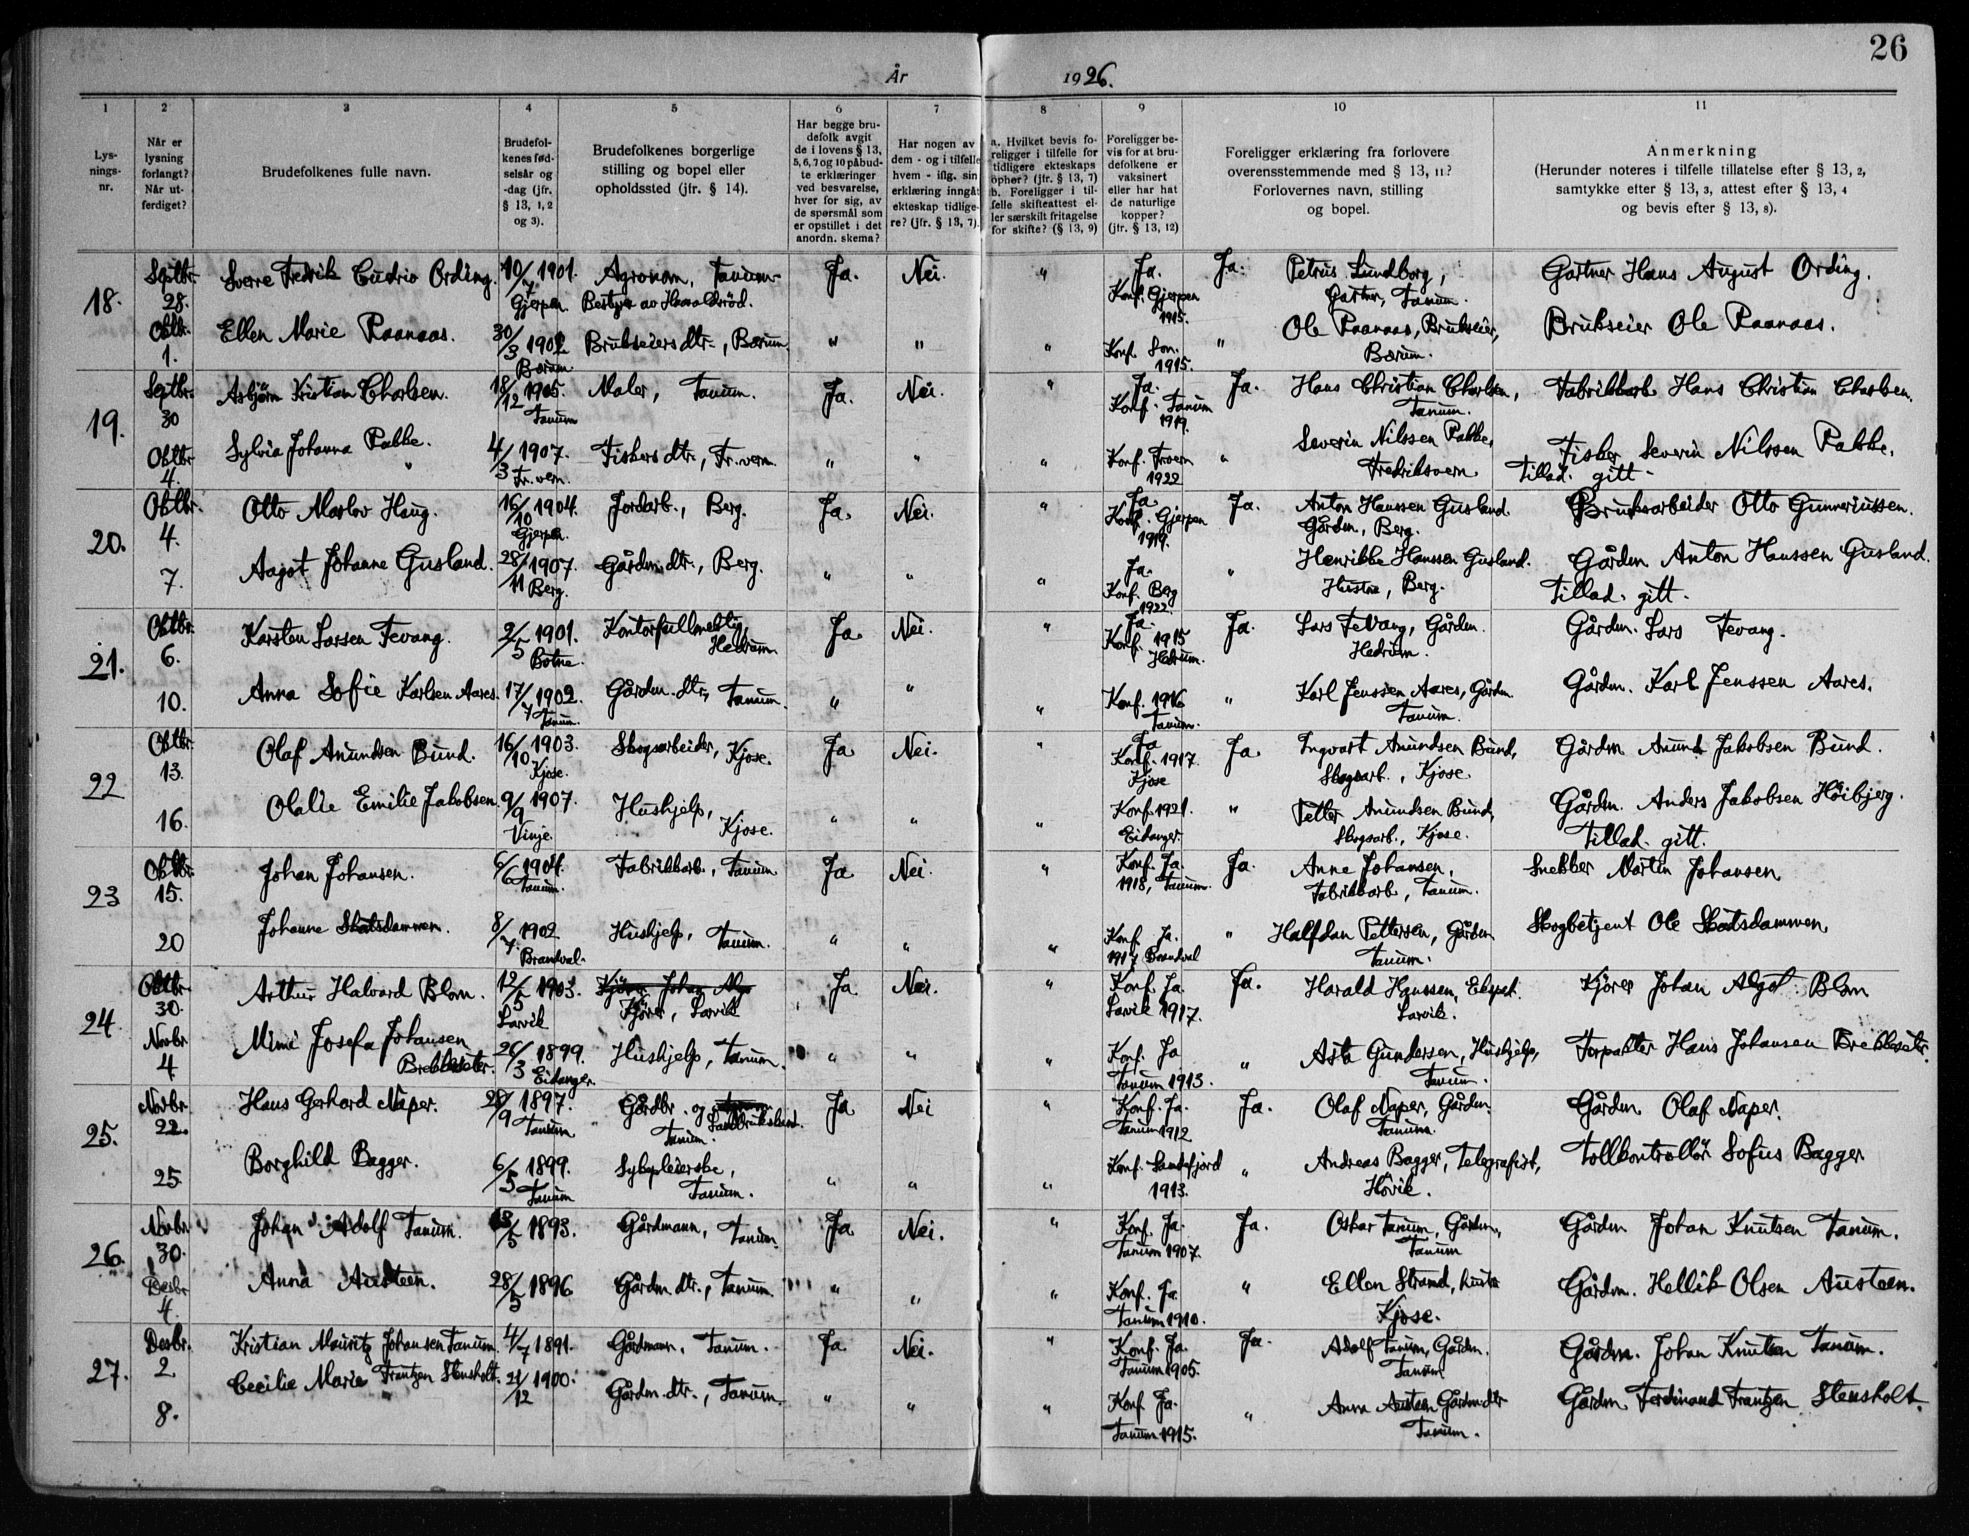 26
År 1926.
1 2 3 4 5 6 7 8 9 10 11
Lys-
nings-
nr.
Når er
lysning
forlangt?
Når ut-
ferdiget?
Brudefolkenes fulle navn.
Brudefol-
kenes fød-
selsår og
-dag (jfr.
§ 13, 1, 2
og 3).
Brudefolkenes borgerlige
stilling og bopel eller
opholdssted (jfr. § 14).
Har begge bru-
defolk avgit
de i lovens § 13,
5, 6, 7 og 10 påbud-
te erklæringer
ved besvarelse,
hver for sig, av
de spørsmål som
er opstillet i det
anordn. skema?
Har nogen av
dem - og i tilfelle
hvem - iflg. sin
erklæring inngåt
ekteskap tidlige-
re? (jfr. § 13, 7).
a. Hvilket bevis fo-
religger i tilfelle for
tidligere ekteskaps
ophør? (jfr. § 13, 7)
b. Foreligger i til-
felle skifteattest el-
ler særskilt fritagelse
for skifte? (§ 13, 9)
Foreligger be-
vis for at bru-
defolkene er
vaksinert
eller har hat
de naturlige
kopper?
(jfr. § 13, 12)
Foreligger erklæring fra forlovere
overensstemmende med § 13, 11?
Forlovernes navn, stilling
og bopel.
Anmerkning
(Herunder noteres i tilfelle tillatelse efter § 13, 2,
samtykke efter § 13, 3, attest efter § 13, 4
og bevis efter § 13, 8).
18. Septbr. 28. Sverre Fredrik Ording. 10/7 1901. Gjerpen. Agronom, Tanum. Ja. Nei. " Ja. Konf. Gjerpen 1915. Ja. Petrus Lundborg, Gartner, Tanum. Gartner Hans August Ording.
Oktbr. 1. Ellen Marie Raanaas. 30/3 1902 Bærum. Brukseiers dtr., Bærum. " " " Konf. 1915. " Ole Raanaas, Brukseier, Bærum. Brukseier Ole Raanaas.
19. Septbr. 30 Asbjörn Kristian Charlsen. 18/12 1905. Tanum Maler, Tanum. Ja. Nei. " Ja. Konf. Tanum 1919. Ja. Hans Christian Charlsen, Tanum. Fabrikkarb. Hans Christian Charlsen.
Oktbr 4. Sylvia Johanna Pakke. 4/3 1907. Fr. vern. Fiskers dtr., Fr. vern. " " " Konf. Frvern 1922 " Severin Nilssen Pakke, Fredriksvern. Fisker Severin Nilssen Pakke. Tillad. gitt.
20. Oktbr. 4. Otto Marlov Haug. 16/10 1904. Gjerpen. Jordarb., Berg. Ja. Nei. " Ja. Konf. Gjerpen 1919. Ja. Anton Hanssen Gusland. Gårdm., Berg. Bruksarbeider Otto Gunneriussen.
7. Aagot Johanne Gusland. 28/11 1907. Berg. Gårdm. dtr., Berg. " " " Ja. Konf. Berg 1922. " Henrikke Hanssen Gusland. Hustru, Berg. Gårdm. Anton Hanssen Gusland. Tillad. gitt.
21. Oktbr. 6. Karsten Larsen Tevang. 2/5 1901. Botne. Kontorfullmektig, Hedrum. Ja. Nei. " Ja. Konf. 1915 Hedrum. Ja. Lars Tevang, Gårdm. Hedrum. Gårdm. Lars Tevang.
10. Anna Sofie Karlsen Aares. 17/7 1902. Tanum. Gårdm. dtr., Tanum. " " " Konf. 1916 Tanum. " Karl Jenssen Aares, Gårdm. Tanum. Gårdm. Karl Jenssen Aares.
22 Oktbr. 13. Olaf Amundsen Bund. 16/10 1903. Kjose. Skogsarbeider, Kjose. Ja Nei. " Ja Konf. 1917. Kjose Ja. Ingvart Amundsen Bund, Skogsarb., Kjose. Gårdm Amund Jakobsen Bund.
16. Olalie Emilie Jakobsen. 9/9 1907. Vinje. Hushjelp, Kjose. " " " Konf. 1921. Eidanger. " Petter Amundsen Bund, Skogsarb., Kjose. Gårdm. Anders Jakobsen Höibjerg. Tillad. gitt.
23 Oktbr. 15. Johan Johansen. 6/6 1904. Tanum. Fabrikkarb., Tanum Ja Nei. " Konf. Ja. 1918, Tanum. Ja. Anne Johansen, Fabrikkarb., Tanum. Snekker Martin Johansen.
20 Johanne Skatsdammen. 8/7 1902 Brandval. Hushjelp, Tanum. " " " Konf. Ja. 1917 Brandval " Halfdan Pettersen, Gårdm Tanum. Skogbetjent Ole Skatsdammen.
24. Oktbr. 30. Arthur Halvard Blom. 12/5 1903. Larvik Kjörer, Larvik Ja Nei. " Konf. Ja Larvik 1917. Ja. Harald Hanssen, Eksped. Larvik. Kjörer Johan Algot Blom
Novbr 4 Mimi Josefa Johansen Brekkeseter. 26/3 1899. Eidanger. Hushjelp, Tanum. " " " Konf. Ja Tanum 1913. " Asta Gundersen, Hushjelp, Tanum. Forpakter Hans Johansen Brekkeseter.
25. Novbr. 22. Hans Gerhard Naper. 28/9 1897. Tanum Gårdbr. og Tanum. Ja Nei " Konf. Ja. Tanum 1912 Ja. Olaf Naper, Gårdm. Tanum. Gårdm. Olaf Naper.
25. Borghild Bagger. 6/5 1899. Tanum Sykepleierske, Tanum. " " " Konf. Sandefjord 1913. " Andreas Bagger, Telegrafist, Hövik. Tollkontrollör Sofus Bagger
26. Novbr. 30. Johan Adolf Tanum. /5 1893. Gårdmann, Tanum. Ja Nei. " Konf. Ja. Tanum 1907. Ja. Oskar Tanum, Gårdm., Tanum Gårdm Johan Knutsen Tanum.
Desbr 4. Anna Austeen. 28/5 1896 Gårdm. dtr., Tanum. " " " Konf. Ja. Tanum 1910. " Ellen Strand, hustr Kjose. Gårdm. Hellik Olsen Austeen.
27. Desbr. 2 Kristian Mauritz Johansen Tanum. 4/7 1891. Gårdmann, Tanum. Ja. Nei. " Konf. Ja. Tanum 1905. Ja. Adolf Tanum, Gårdm. Tanum Gårdm. Johan Knutsen Tanum.
8. Cecilie Marie Frantzen Stensholt. 21/12 1900. Gårdm. dtr., Tanum. " " " Konf. Ja. Tanum 1915. " Anna Austeen Gårdm. dtr Tanum. Gårdm. Ferdinand Frantzen Stensholt.